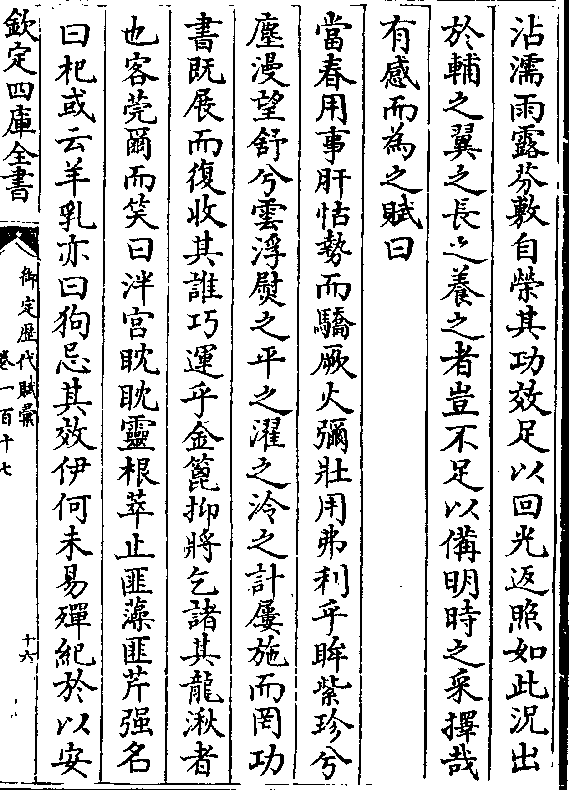 沾濡雨露芬敷自榮其功效足以回光返照如此况出
於輔之翼之長之養之者豈不足以備明時之采擇哉
有感而為之賦曰
當春用事肝怙勢而驕厥火彌壯用弗利乎眸紫珍兮
塵漫望舒兮雲浮熨之平之濯之泠之計屢施而罔功
書既展而復收其誰巧運乎金篦抑將乞諸其龍湫者
也客莞爾而笑曰泮宫眈眈靈根萃止匪藻匪芹强名
曰杞或云羊乳亦曰狗忌其效伊何未易殫紀於以安
欽定四庫全書
御定歴代賦彚
卷一百十七
十六